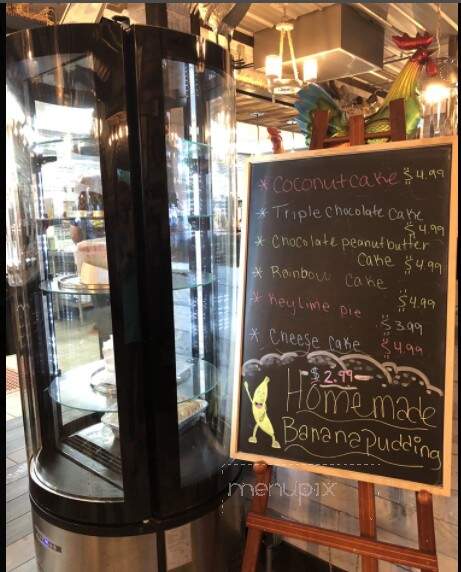 * Coconut cake $4.99
* Triple chocolate cake
$4.99
* Chocolate peanut butter
cake $4.99
* Rainbow cake
$4.99
* Key lime pie
$3.99
* Cheese cake $4.99
$2.99
Homemade
Banana pudding
menupix